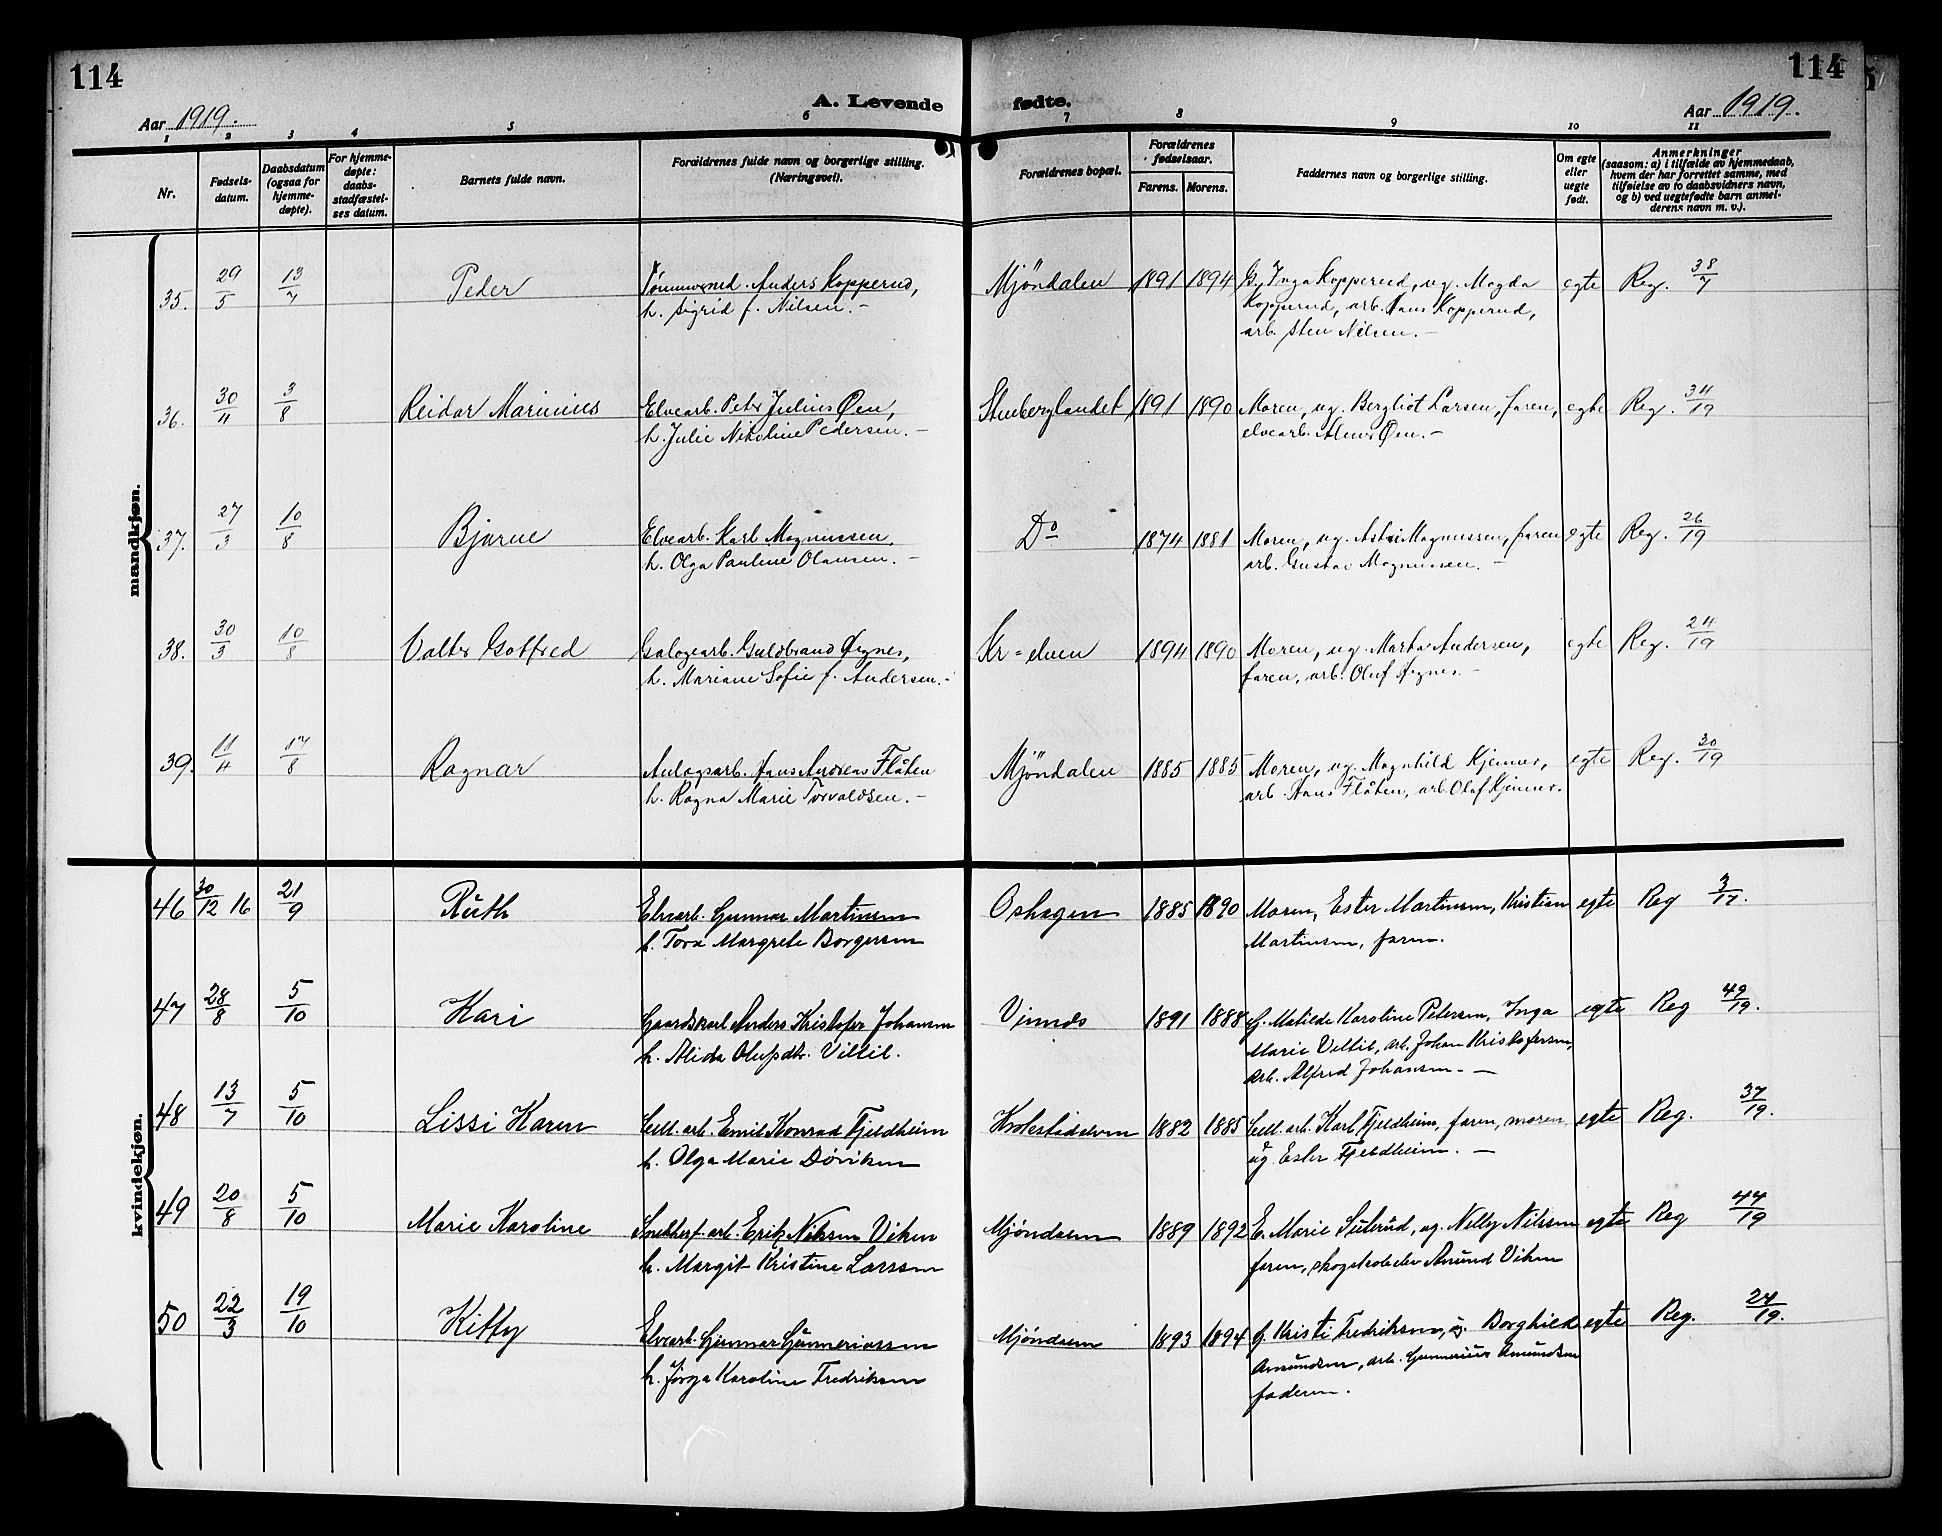 114
114
A. Levende fødte.
Aar 1919.
Aar 1919.
1 2 3 4 5 6 7 8 9 10 11
Nr.
Fødsels-
datum.
Daabsdatum
(ogsaa for
hjemme-
døpte).
For hjemme-
døpte:
daabs-
stadfæstel-
ses datum.
Barnets fulde navn.
Forældrenes fulde navn og borgerlige stilling.
(Næringsvei).
Forældrenes bopæl.
Forældrenes
fødselsaar.
Farens. Morens.
Faddernes navn og borgerlige stilling.
Om egte
eller
uegte
født.
Anmerkninger
(saasom: a) i tilfælde av hjemmedaab,
hvem der har forrettet samme, med
tilføielse av to daabsvidners navn,
og b) ved uegtefødte barn anmel-
derens navn m. v.).
mandkjøn.
35. 29/5 13/7 Peder Anders Kopperud, Mjöndalen 1891 1894 G. Inga Kopperud, ug. Magda egte Reg. 38/7
h. Sigrid f. Nilsen. - Kopperud, arb. Hans Kopperud,
arb. Sten Nilsen. -
36. 30/4 3/8 Reidar Marinius Elvearb. Peter Julius Øen, Stenberglandet 1891 1890 Moren, ug. Bergliot Larsen, faren, egte Reg. 34/19
h. Julie Nikoline Pedersen. - elvearb. Øen. -
37. 27/3 10/8 Bjarne Elvearb. Karl Magnussen, Do 1874 1881 Moren, ug. Magnussen, faren egte Reg. 26/19
h. Olga Pauline Olausen. - arb. Gustav Magnussen. -
38. 30/3 10/8 Valter Gotfred Galogearb. Guldbrand Øygnes, Kr-elven 1894 1890 Moren, ug. Marta Andersen, egte Reg. 24/19
h. Mariane Sofie f. Andersen. - faren, arb. Oluf Øygnes. -
39. 11/4 17/8 Ragnar Anlægsarb. Hans Andreas Flåten Mjöndalen 1885 1885 Moren, ug. Magnhild Kjenner, egte Reg. 30/19
h. Ragna Marie Torvaldsen. - arb. Hans Flåten, arb. Olaf Kjenner.
kvindekjøn.
46 30/12 16 21/9 Ruth Elvearb. Gunnar Martinsen Oshagen 1885 1890 Moren, Ester Martinsen, Kristian egte Reg 3/17.
h. Tora Margrete Borgersen Martinsen, faren.
47 28/8 5/10 Kari Gaardskarl Anders Kristofer Johansen Vinnes 1891 1888 G. Matilde Karoline Petersen, Inga egte Reg 49/19.
h. Alida Olufsdtr. Viltil. Marie Viltil, arb. Johan Kristofersen,
arb. Alfred Johansen. -
48 13/7 5/10 Lissi Karen Cell. arb. Emil Konrad Fjeldheim Krokstadelven 1882 1885 Cell. arb. Karl Fjeldheim, faren, moren, egte Reg. 37/19.
h. Olga Marie Døviken ug Ester Fjeldheim. -
49 20/8 5/10 Marie Karoline arb. Erik Nilsen Viken Mjöndalen 1889 1892 E. Marie Sulerud, ug. Nelly Nilsen egte Reg 44/19
h. Margit Kristine Larssen faren, skogskoleelev Amund Viken
50 22/3 19/10 Kitty Elvearb. Gunnar Gunneriussen Mjöndalen 1893 1894 G. Kristi Fredriksen, ug. Borghild egte Reg. 24/19.
h. Jörga Karoline Fredriksen Amundsen, arb. Gunnerius Amundsen
faderen.